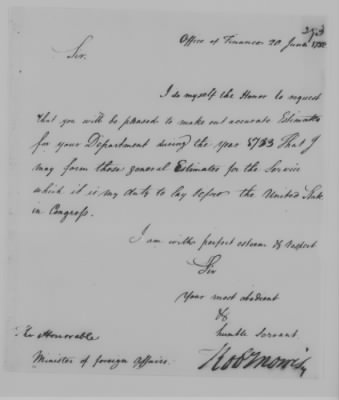 393
Office of Finance 20 June 1782
Sir.
I do myself the Honor to request
that you will be pleased to make out accurate Estimates
for your Department during the year 1783 That I
may form those general Estimates for the Service
which it is my duty to lay before the United States
in Congress.
I am with perfect esteem & respect
Sir
Your most obedient
&
humble Servant.
The Honorable
Minister of foreign Affairs.
Robt Morris